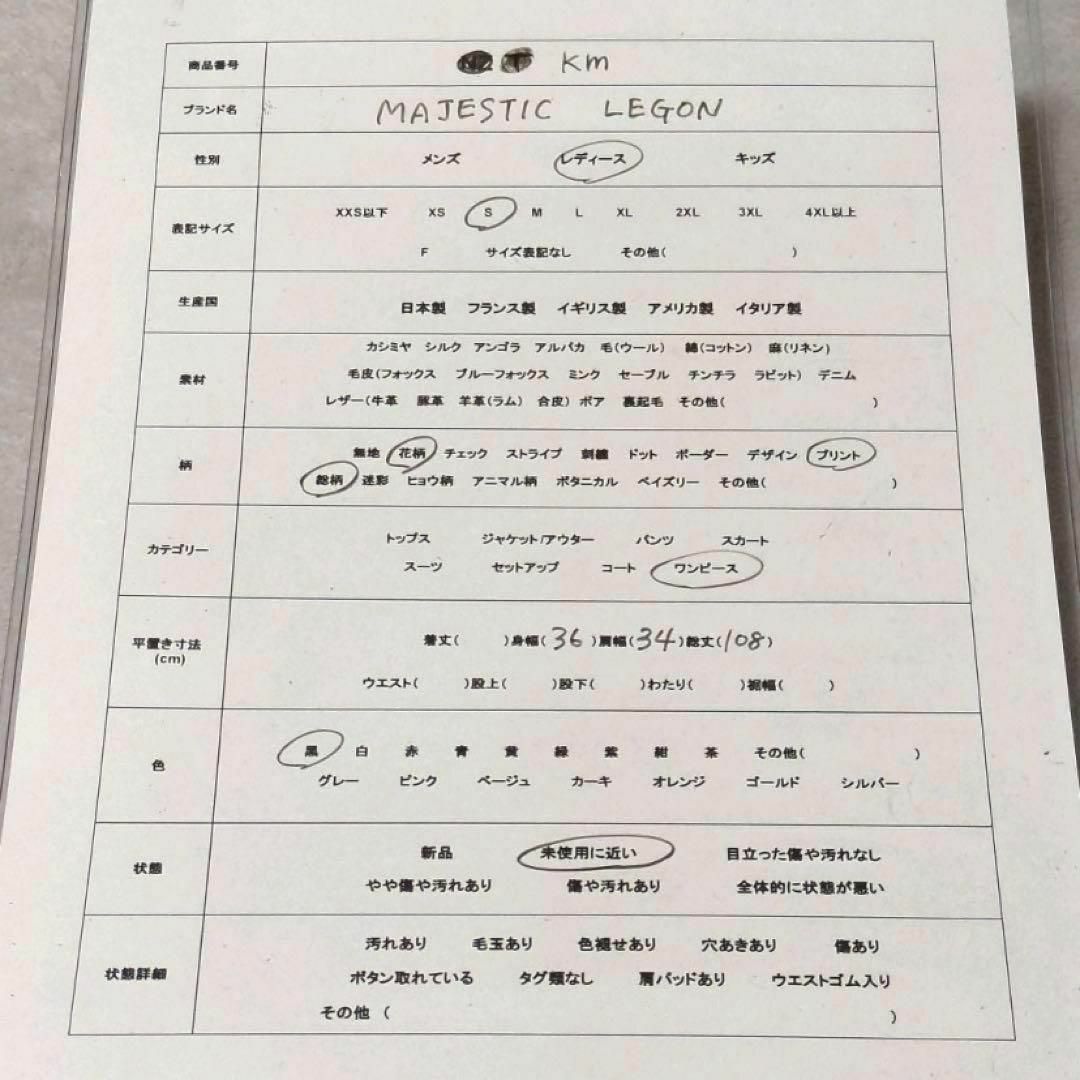 商品番号 Km
ブランド名 MAJESTIC LEGON
性別 メンズ レディース キッズ
表記サイズ XXS以下 XS S M L XL 2XL 3XL 4XL以上
F サイズ表記なし その他( )
生産国 日本製 フランス製 イギリス製 アメリカ製 イタリア製
素材 カシミヤ シルク アンゴラ アルパカ 毛(ウール) 綿(コットン) 麻(リネン)
毛皮(フォックス ブルーフォックス ミンク セーブル チンチラ ラビット) デニム
レザー(牛革 豚革 羊革(ラム) 合皮) ボア 裏起毛 その他( )
柄 無地 花柄 チェック ストライプ 刺繍 ドット ボーダー デザイン プリント
総柄 迷彩 ヒョウ柄 アニマル柄 ボタニカル ペイズリー その他( )
カテゴリー トップス ジャケット/アウター パンツ スカート
スーツ セットアップ コート ワンピース
平置き寸法 (cm) 着丈( )身幅(36)肩幅(34)総丈(108)
ウエスト( )股上( )股下( )わたり( )裾幅( )
色 黒 白 赤 青 黄 緑 紫 紺 茶 その他( )
グレー ピンク ベージュ カーキ オレンジ ゴールド シルバー
状態 新品 未使用に近い 目立った傷や汚れなし
やや傷や汚れあり 傷や汚れあり 全体的に状態が悪い
状態詳細 汚れあり 毛玉あり 色褪せあり 穴あきあり 傷あり
ボタン取れている タグ類なし 肩パッドあり ウエストゴム入り
その他 ( )